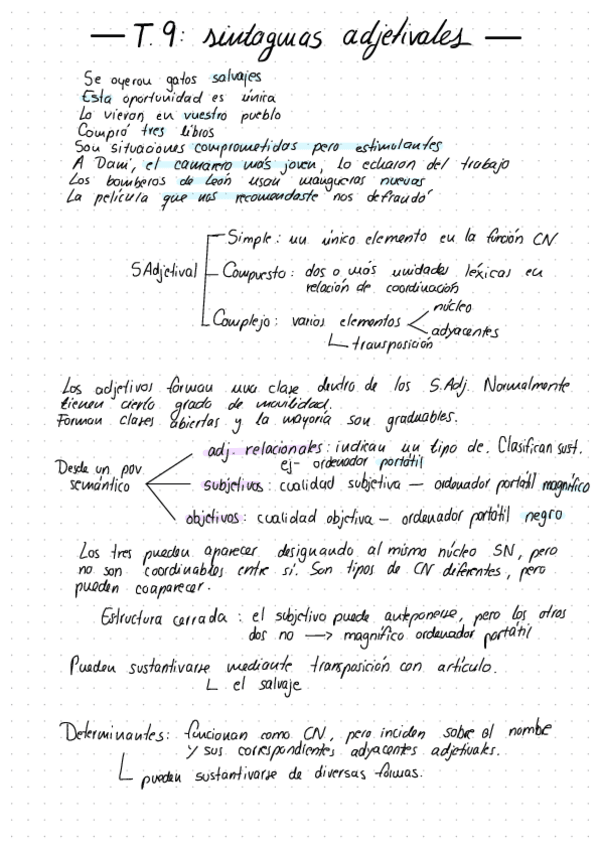 — T.9: sintagmas adjetivales —
Se oyeron gatos salvajes
Esta oportunidad es única
Lo vieron en vuestro pueblo
Compró tres libros
Son situaciones comprometidas pero estimulantes
A Dani, el camarero más joven, lo echaron del trabajo
Los bomberos de León usan mangueras nuevas
La película que nos recomendaste nos defraudó
Simple: un único elemento en la función CN
SAdjetival
Compuesto: dos o más unidades léxicas en
relación de coordinación
Complejo: varios elementos
núcleo
adyacentes
transposición
Los adjetivos forman una clase dentro de los S.Adj. Normalmente
tienen cierto grado de movilidad.
Forman clases abiertas y la mayoría son graduables.
Desde un pov
semántico
adj. relacionales: indican un tipo de. Clasifican sust.
ej- ordenador portátil
subjetivos: cualidad subjetiva — ordenador portátil magnífico
objetivos: cualidad objetiva — ordenador portátil negro
Los tres pueden aparecer designando al mismo núcleo SN, pero
no son coordinables entre sí. Son tipos de CN diferentes, pero
pueden coaparecer.
Estructura cerrada: el subjetivo puede anteponerse, pero los otros
dos no —> magnífico ordenador portátil
Pueden sustantivarse mediante transposición con artículo.
el salvaje
Determinantes: funcionan como CN, pero inciden sobre el nombre
y sus correspondientes adyacentes adjetivales.
pueden sustantivarse de diversas formas.